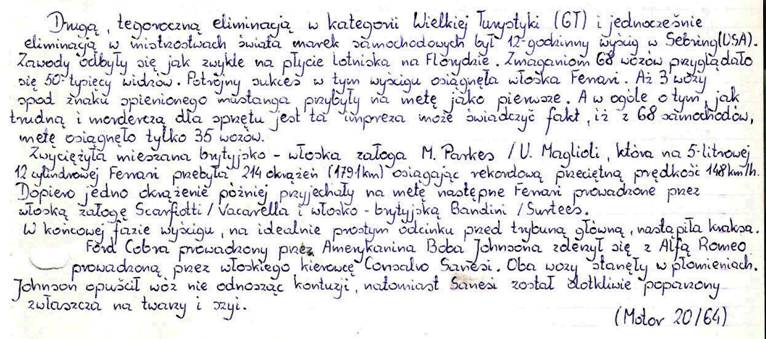 Drugą, tegoroczną eliminacją w kategorii Wielkiej Turystyki (GT) i jednocześnie
eliminacją w mistrzostwach świata marek samochodowych był 12-godzinny wyścig w Sebring (USA).
Zawody odbyły się jak zwykle na płycie lotniska na Florydzie. Zmaganiom 68 wozów przyglądało
się 50-tysięcy widzów. Potrójny sukces w tym wyścigu osiągnęła włoska Ferrari. Aż 3 wozy
spod znaku spienionego mustanga przybyły na metę jako pierwsze. A w ogóle o tym, jak
trudną i morderczą dla sprzętu jest ta impreza może świadczyć fakt, iż z 68 samochodów,
metę osiągnęło tylko 35 wozów.
Zwyciężyła mieszana brytyjsko - włoska załoga M. Parkes / U. Maglioli, która na 5-litrowej
12 cylindrowej Ferrari przebyła 214 okrążeń (1791km) osiągając rekordową przeciętną prędkość 148 km/h.
Dopiero jedno okrążenie później przyjechały na metę następne Ferrari prowadzone przez
włoską załogę Scarfiotti / Vacarella i włosko - brytyjską Bandini / Surtees.
W końcowej fazie wyścigu, na idealnie prostym odcinku przed trybuną główną, nastąpiła kraksa.
Ford Cobra prowadzony przez Amerykanina Boba Johnsona zderzył się z Alfą Romeo
prowadzoną przez włoskiego kierowcę Consalvo Sanesi. Oba wozy stanęły w płomieniach.
Johnson opuścił wóz nie odnosząc kontuzji, natomiast Sanesi został dotkliwie poparzony
zwłaszcza na twarzy i szyi.
(Motor 20/64)